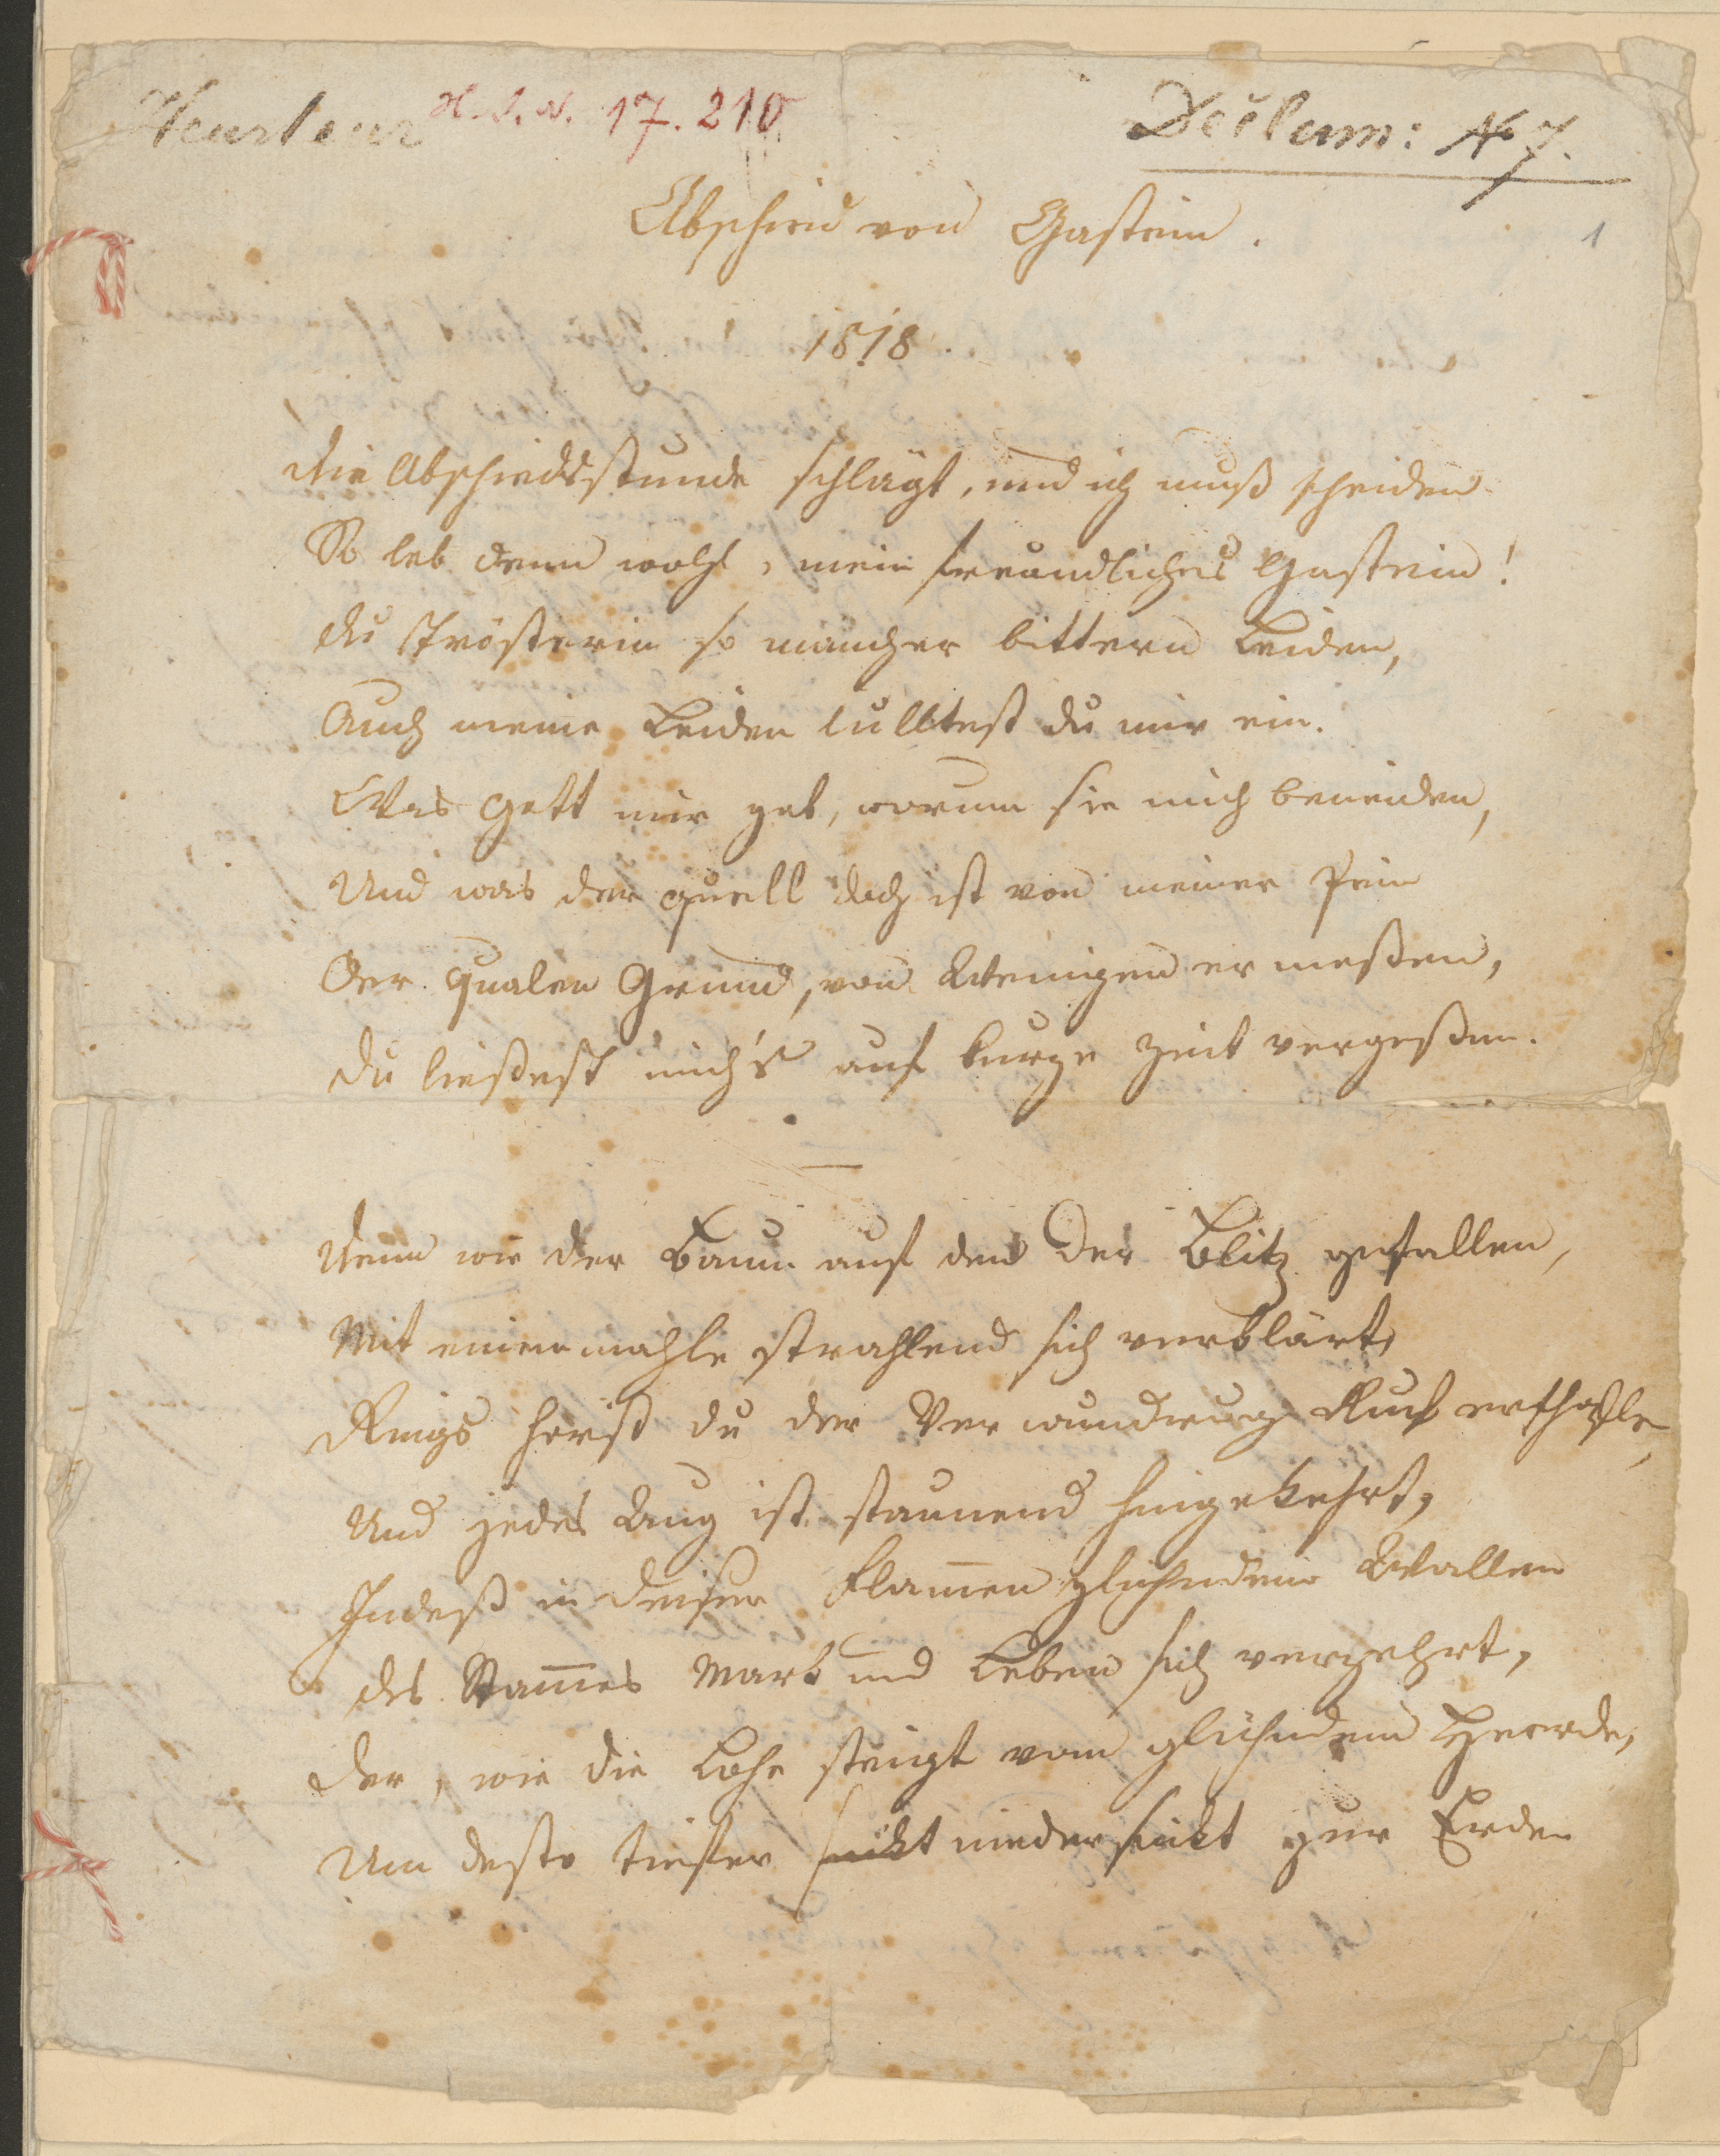 Heurteur H.I.N. 17.210
Declam: No 7.
1
Abschied von Gastein.
1818.
Die Abschiedsstunde schlägt, und ich muß scheiden
So leb denn wohl, mein freundliches Gastein!
Du Trösterin so mancher bittern Leiden,
Auch meine Leiden lulltest du mir ein.
Was Gott mir gab, worum sie mich beneiden,
Und was der Quell doch ist von meiner Pein
Der Qualen Grund, von Wenigen ermeßen,
Du ließest mich's auf kurze Zeit vergeßen.
Denn wie der Baum auf den der Blitz gefallen,
Mit einemmahle strahlend sich verklärt,
Rings hörst du der Verwundrung Ruf erschallen,
Und jedes Aug ist staunend hingekehrt,
Indeß in dieser Flam̅en glühendem Wallen
des Stam̅es Mark und Leben sich verzehrt,
Der, wie die Lohe steigt vom glühendem Heerde,
Um desto tiefer sinkt niedersinkt zur Erde